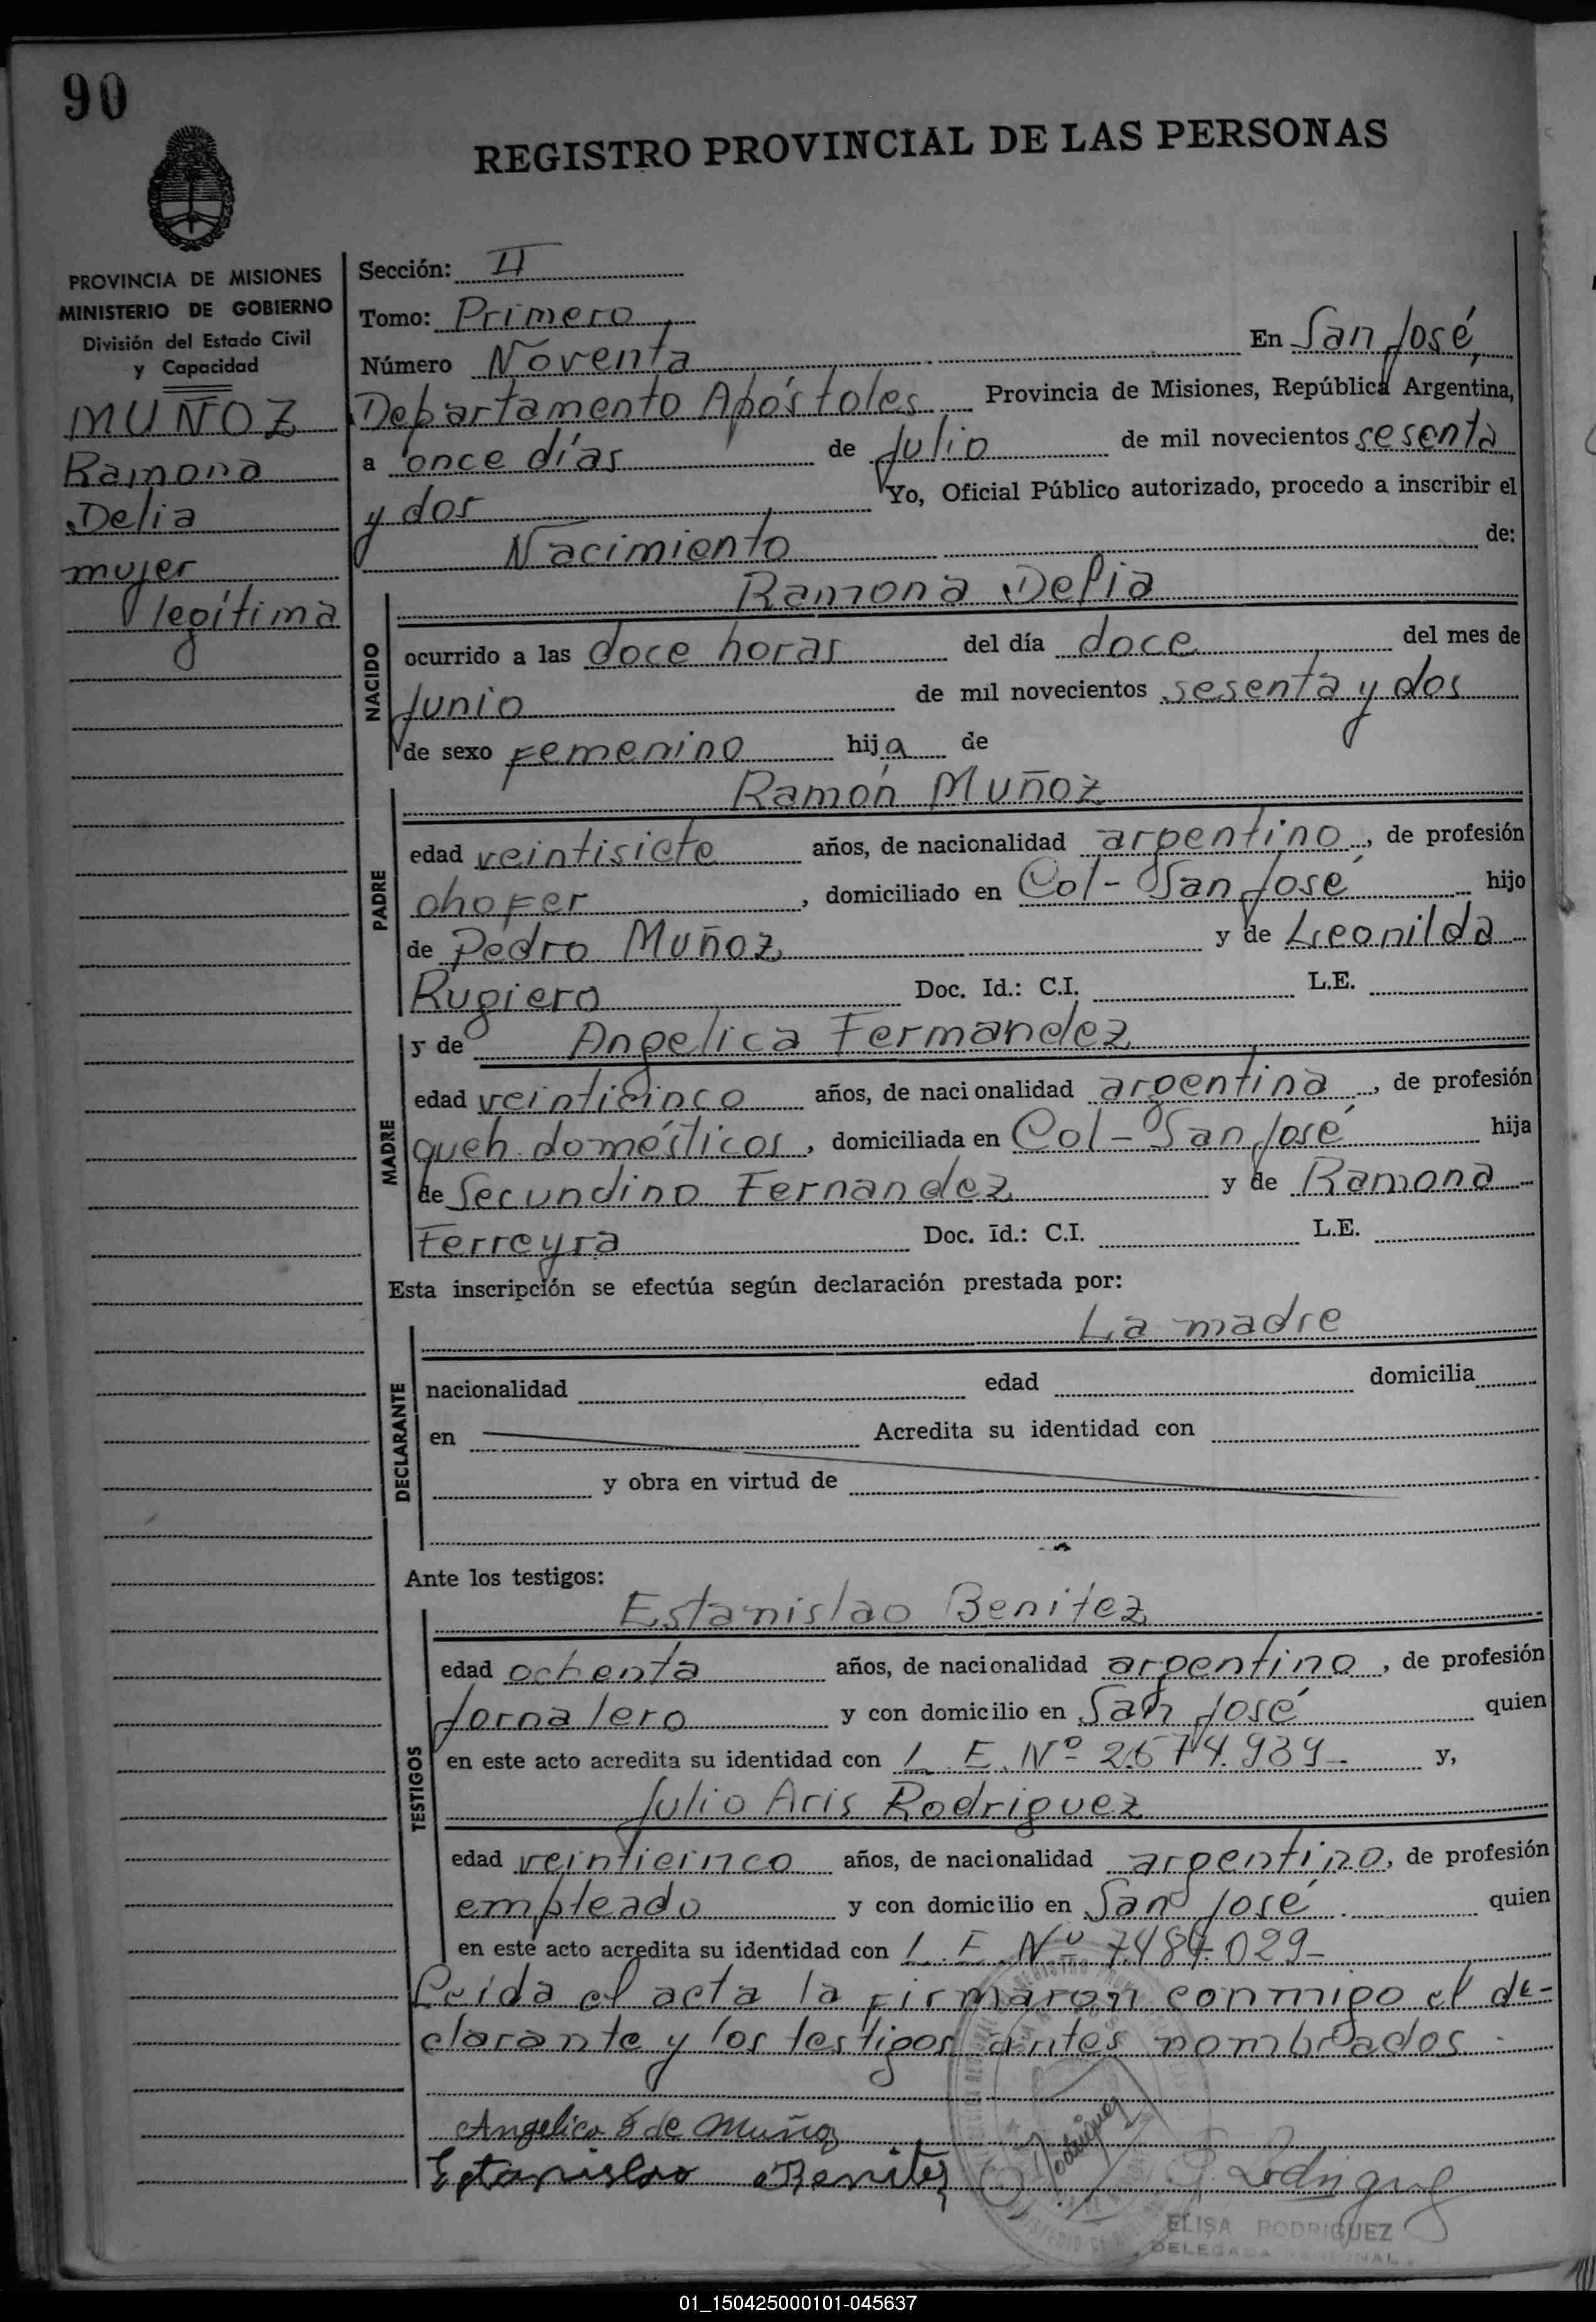 90
REGISTRO PROVINCIAL DE LAS PERSONAS
PROVINCIA DE MISIONES
MINISTERIO DE GOBIERNO
División del Estado Civil
y Capacidad
MUÑOZ
Ramona
Delia
mujer
legítima
Sección: II
Tomo: Primero
Número Noventa En San José,
Departamento Apóstoles Provincia de Misiones, República Argentina,
a once días de Julio de mil novecientos sesenta
y dos Yo, Oficial Público autorizado, procedo a inscribir el
Nacimiento de:
Ramona Delia
NACIDO
ocurrido a las doce horas del día doce del mes de
Junio de mil novecientos sesenta y dos
de sexo femenino hija de
Ramón Muñoz
PADRE
edad veintisiete años, de nacionalidad argentino, de profesión
chofer, domiciliado en Col- San José hijo
de Pedro Muñoz y de Leonilda
Rugiero Doc. Id.: C.I. L.E.
y de Angelica Fermandez
MADRE
edad veinticinco años, de naci onalidad argentina, de profesión
queh. domésticos, domiciliada en Col- San José hija
de Secundino Fernandez y de Ramona
Ferreyra Doc. Id.: C.I. L.E.
Esta inscripción se efectúa según declaración prestada por:
La madre
DECLARANTE
nacionalidad edad domicilia
en Acredita su identidad con
y obra en virtud de
Ante los testigos:
Estanislao Benitez
TESTIGOS
edad ochenta años, de nacionalidad argentino, de profesión
Jornalero y con domicilio en San José quien
en este acto acredita su identidad con L. E. Nº 2.674.939- y,
Julio Aris Rodriguez
edad veinticinco años, de nacionalidad argentino, de profesión
empleado y con domicilio en San José quien
en este acto acredita su identidad con L. E. Nº 7.484.029-
Leída el acta la firmaron conmigo el de-
clarante y los testigos antes nombrados.
Angelica F de Muñoz
Estanislao Benitez Rodriguez Rodriguez
ELISA RODRIGUEZ
DELEGADA
01_150425000101-045637